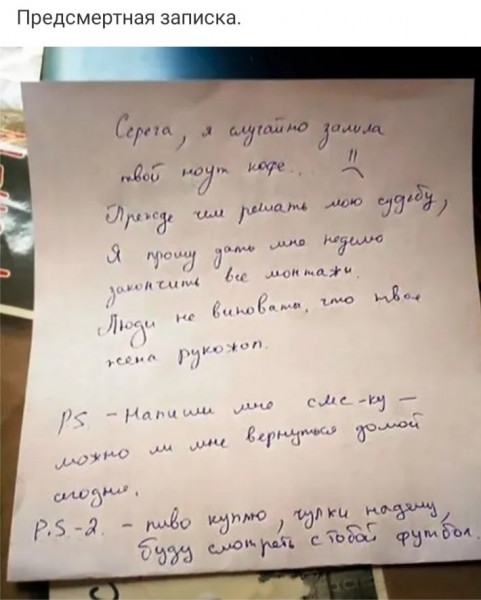 Предсмертная записка.
Серега, я случайно залила
твой ноут кофе..
Прежде чем решать мою судьбу,
Я прошу дать мне неделю
закончить все монтажи.
Люди не виноваты, что твоя
жена рукожоп.
PS. - Напиши мне смс-ку -
можно ли мне вернуться домой
сегодня.
P.S.-2. - пиво куплю, чулки надену,
буду смотреть с тобой футбол.